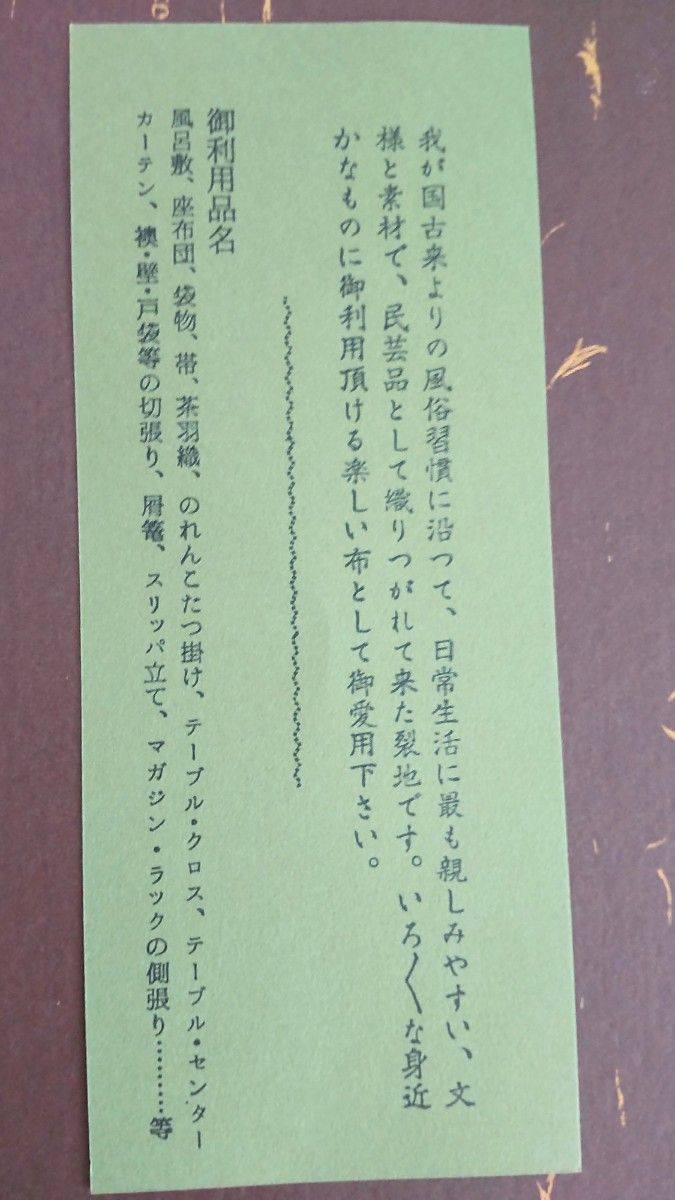 我が国古来よりの風俗習慣に沿つて、日常生活に最も親しみやすい、文
様と素材で、民芸品として織りつがれて来た裂地です。いろ〱な身近
かなものに御利用頂ける楽しい布として御愛用下さい。
御利用品名
風呂敷、座布団、袋物、帯、茶羽織、のれんこたつ掛け、テーブル・クロス、テーブル・センター
カーテン、襖・壁・戸袋等の切張り、屑篭、スリッパ立て、マガジン・ラックの側張り………等